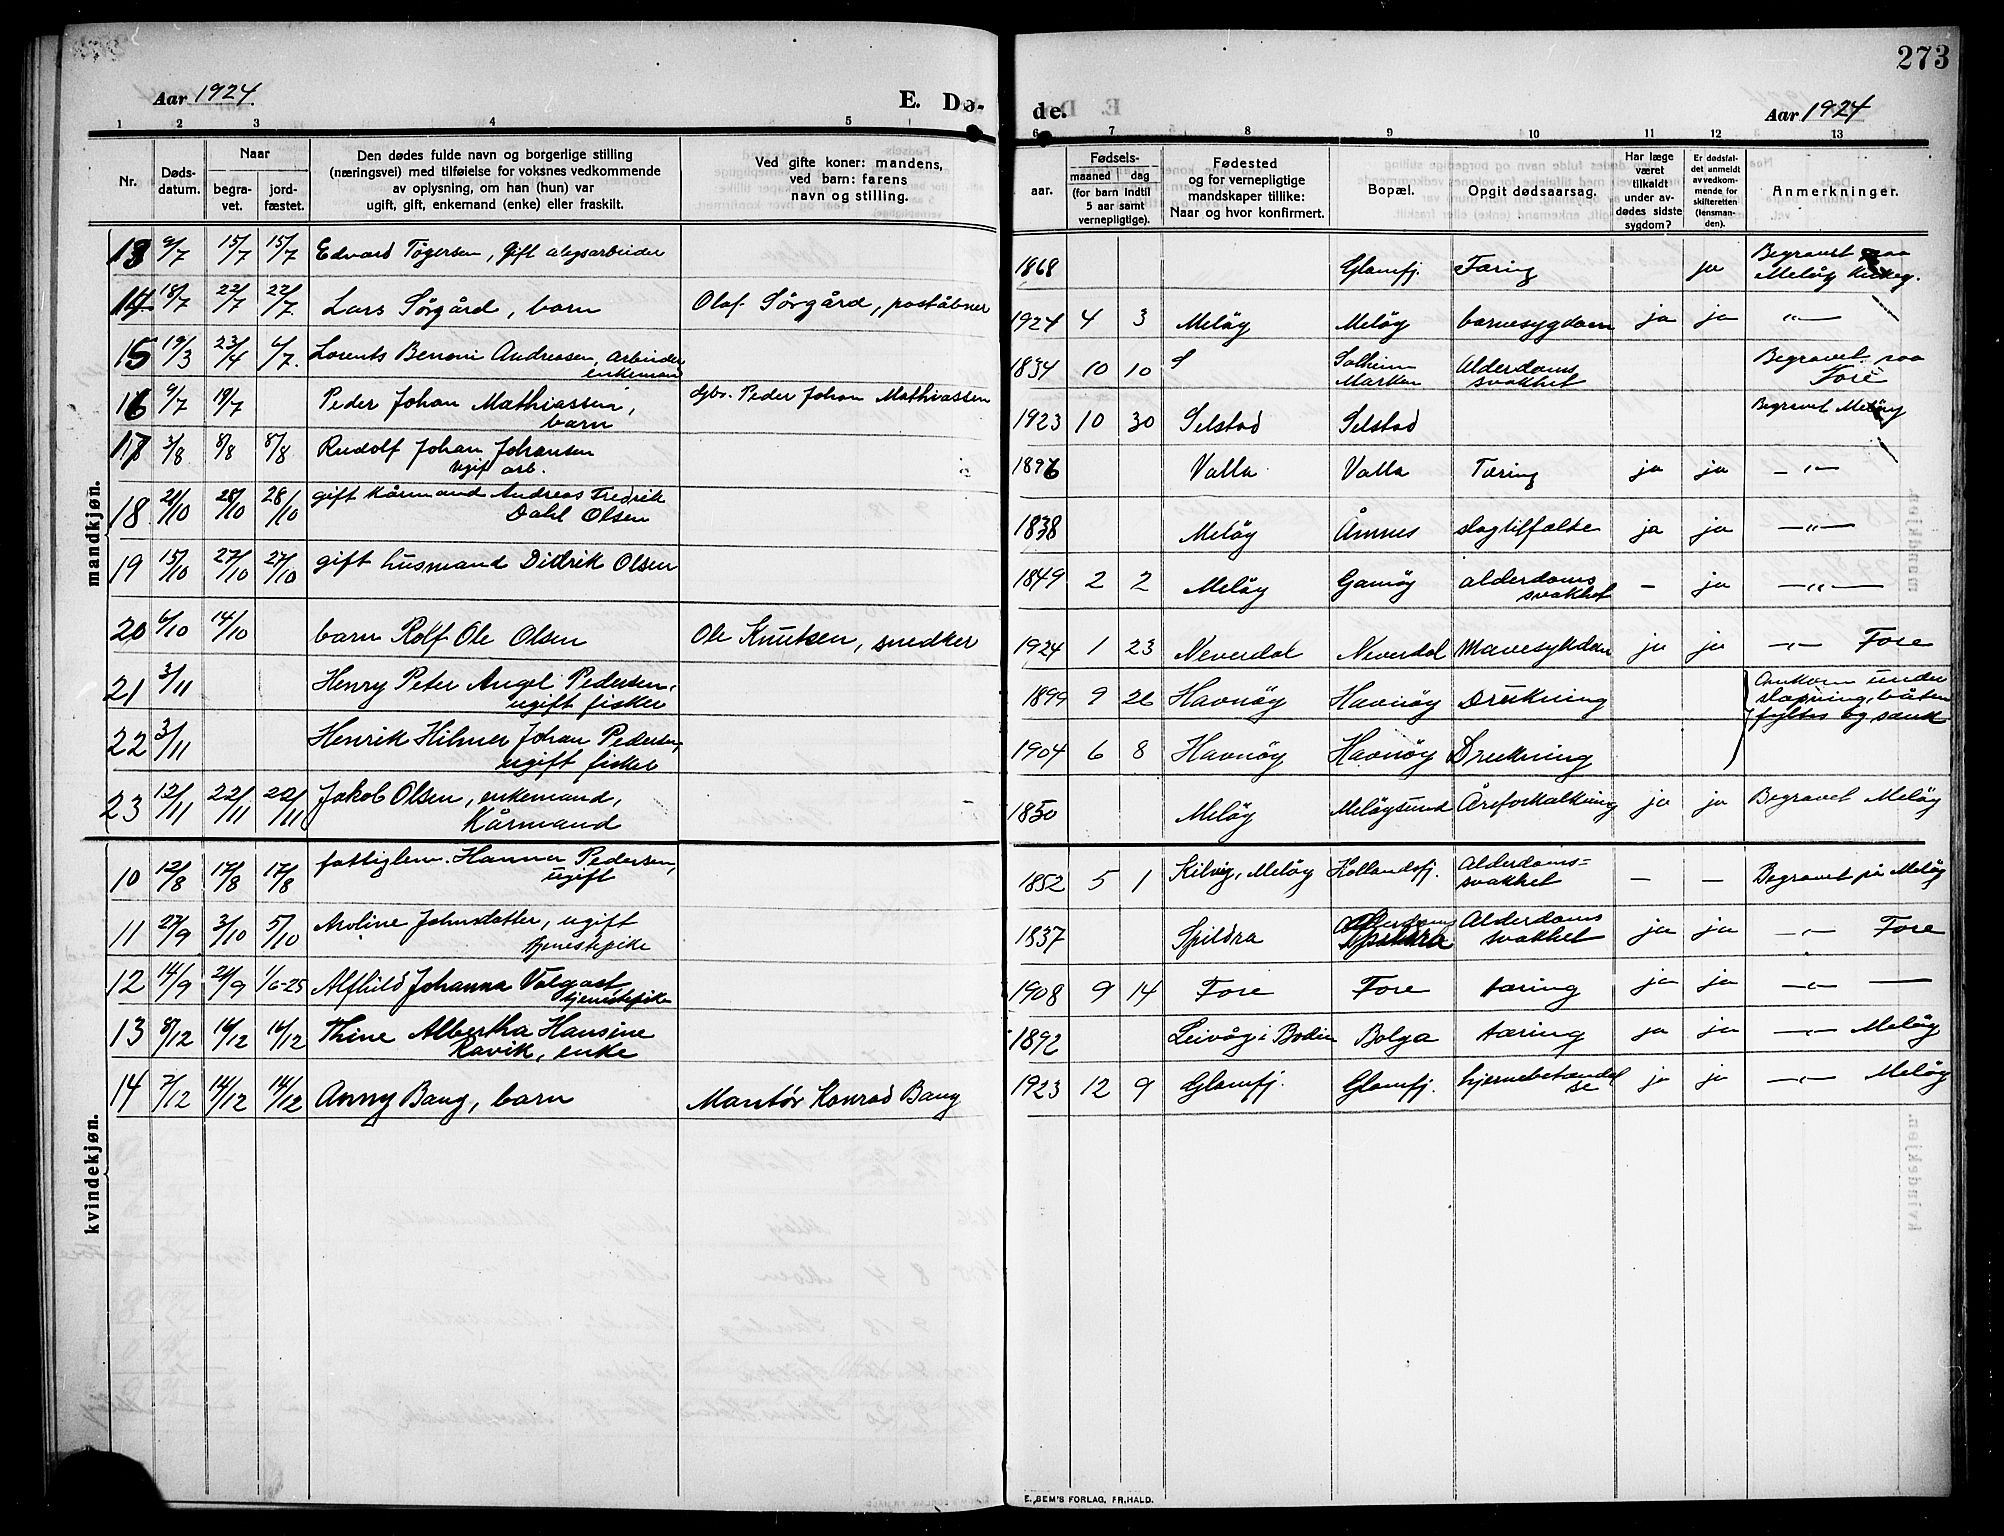 273
Aar 1924
E. Dø-
de.
Aar 1924
1 2 3 4 5
6 7 8 9 10 11 12 13
Nr.
Døds-
datum.
Naar
begra-
vet.
jord-
fæstet.
Den dødes fulde navn og borgerlige stilling
(næringsvei) med tilføielse for voksnes vedkommende
av oplysning, om han (hun) var
ugift, gift, enkemand (enke) eller fraskilt.
Ved gifte koner: mandens,
ved barn: farens
navn og stilling.
aar.
Fødsels-
maaned dag
(for barn indtil
5 aar samt
vernepligtige).
Fødested
og for vernepligtige
mandskaper tillike:
Naar og hvor konfirmert.
Bopæl.
Opgit dødsaarsag.
Har læge
været
tilkaldt
under av-
dødes sidste
sygdom?
Er dødsfal-
det anmeldt
av vedkom-
mende for
skifteretten
(lensman-
den).
Anmerkninger.
mandkjøn.
13 9/7 15/7 15/7 Edvard Tøgersen, Gift 1868 Glomfj. Tæring ja Begravet paa
Meløy
14 18/7 22/7 22/7 Lars Sørgård, barn Olaf Sørgård, poståbner 1924 4 3 Meløy Meløy barnesygdom ja ja —"—
15 19/3 23/4 6/7. Lorents Benoni Andreasen, arbeider
enkemand 1834 10 10 Solheim
Marken Alderdoms
svakhet Begravet paa
Fore
16 9/7 19/7 Peder Johan Mathiassen,
barn dgbr. Peder Johan Mathiassen 1923 10 30 Selstad Selstad Begravet Meløy
17 3/8 8/8 8/8 Rudolf Johan Johansen
ugift arb. 1896 Valla Valla Tæring ja ja —"—
18 21/10 28/10 28/10 gift kårmand Andreas Fredrik
Dahl Olsen 1838 Meløy Åmnes slagtilfælde ja ja —"—
19 15/10 27/10 27/10 gift husmand Didrik Olsen 1849 2 2 Meløy Gamøy alderdoms
svakhet — ja —"—
20 6/10 14/10 barn Rolf Ole Olsen Ole Knutsen, snedker 1924 1 23 Neverdal Neverdal Mavesykdom ja ja —"— Fore
21 3/11 Henry Peter Angel Pedersen,
ugift fisker 1899 9 26 Havnøy Havnøy Drukning Omkom under
båten
fyltes og sank
22 3/11 Henrik Hilmer Johan Pedersen,
ugift fisker 1904 6 8 Havnøy Havnøy Drukning
23 12/11 22/11 22/11 Jakob Olsen, enkemand,
Kårmand 1850 Meløy Meløysund Åreforkalkning ja ja Begravet Meløy
kvindekjøn.
10 12/8 17/8 17/8 fattiglem. Hanna Pedersen,
ugift 1852 5 1 Kilvig, Meløy Hollandsfj. Alderdoms=
svakhet — — Begravet på Meløy
11 27/9 3/10 5/10 Aroline Johnsdatter, ugift
tjenestepike 1837 Spildra Spildra Alderdoms
svakhet ja ja —"— Fore
12 14/9 24/9 1/6-25 Alfhild Johanna Volgast
tjenestepike 1908 9 14 Fore Fore tæring ja ja —"— —
13 8/12 16/12 16/12 Thine Albertha Hansine
Ravik, enke 1892 Leivåg i Bodin Bolga tæring ja ja —"— Meløy
14 7/12 14/12 14/12 Anny Bang, barn Montør Konrad Bang 1923 12 9 Glomfj. Glomfj. hjernebetændel
se ja ja —"— Meløy
E. SEM'S FORLAG, FR.HALD.